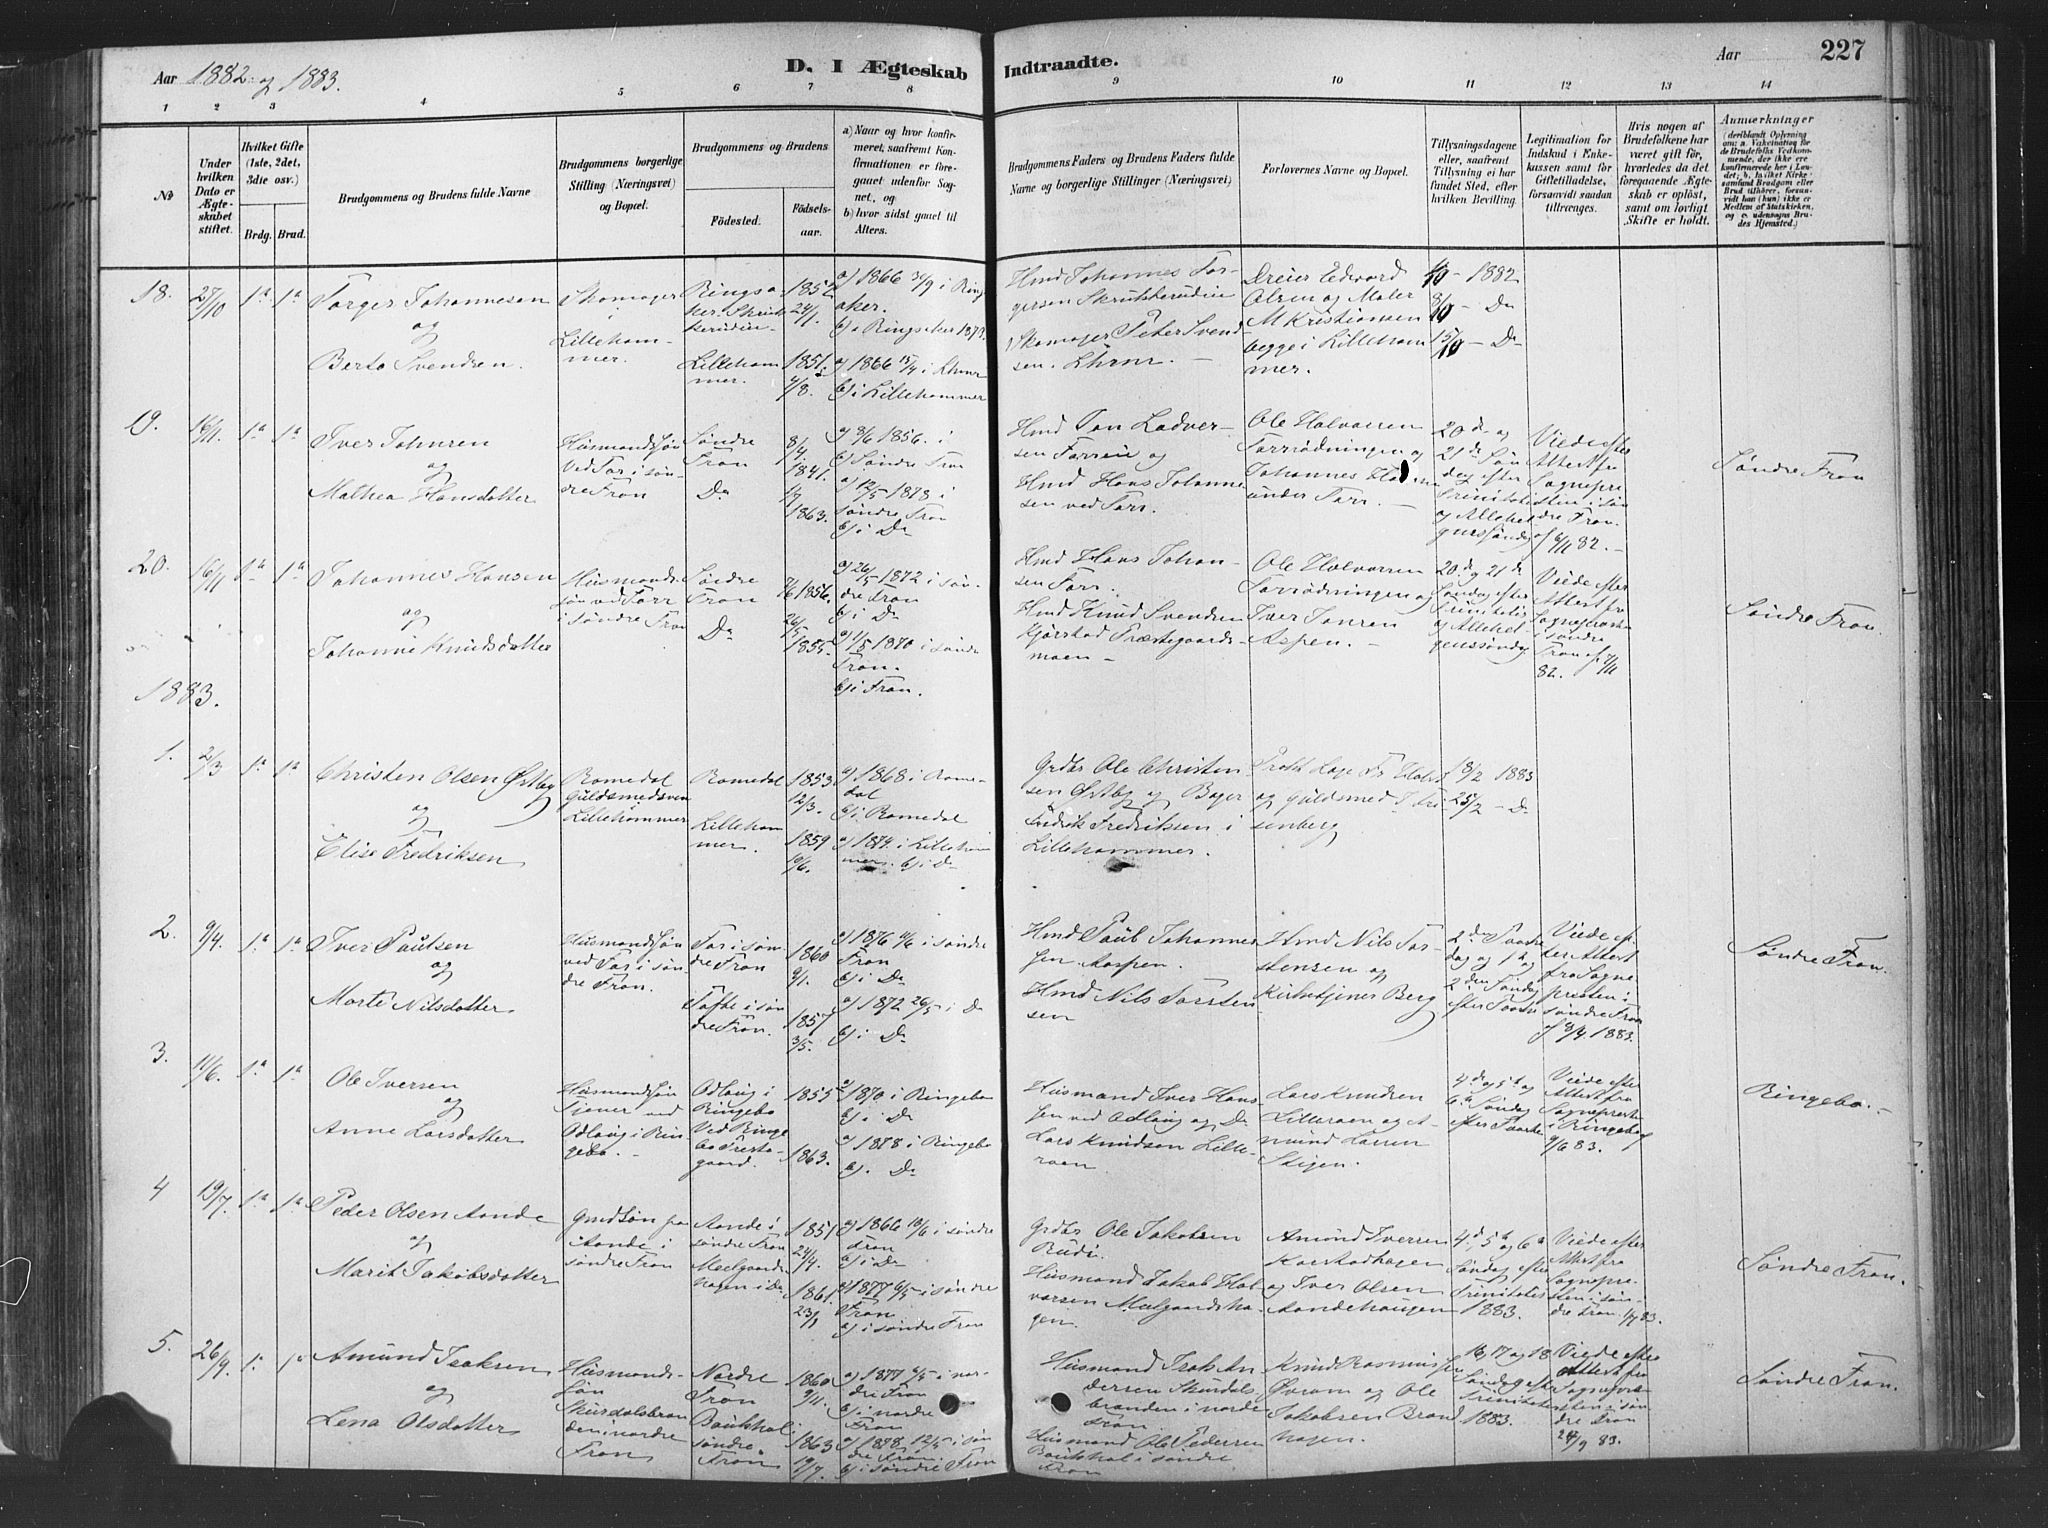 Aar 1882 og 1883.
D. I Ægteskab
Indtraadte.
Aar
227
1 2 3 4 5 6 7 8
9 10 11 12 13 14
No
Under hvilken Dato er Ægteskabet stiftet.
Hvilket Gifte (1ste, 2det, 3die osv.)
Brdg. Brud.
Brudgommens og Brudens fulde Navne
Brudgommens borgerlige Stilling (Næringsvei) og Bopæl.
Brudgommens og Brudens
Fødested.
Fødselsaar.
a) Naar og hvor konfirmeret, saafremt Konfirmationen er foregaaet udenfor Sognet, og
b) hvor sidst gaaet til Alters.
Brudgommens Faders og Brudens Faders fulde Navne og borgerlige Stillinger (Næringsvei)
Forlovernes Navne og Bopæl.
Tillysningsdagene eller, saafremt Tillysning ei har fundet Sted, efter hvilken Bevilling.
Legitimation for Indskud i Enkekassen samt for Giftetilladelse, forsaavidt saadan tiltrænges.
Hvis nogen af Brudefolkene har været gift før, hvorledes da det foregaaende Ægteskab er opløst, samt om lovligt Skifte er holdt.
Anmærkninger
18. 27/10 1ª 1ª
Torger Johannesen
og
Berte Svendsen.
Skomager
i
Lillehammer.
Lillehammer.
1852 24/1.
1851. 4/8.
a) 1866 30/9 i Ringsaker.
b) i Ringsaker 1873.
a) 1866 15/4 i Lhmr
b) i Lillehammer
Hmd Johannes Torgersen
Skomager Peter Svendsen. Lhmr. —
Dreier Edvard Olsen og Maler M Kristiansen begge i Lillehammer.
1/10 — 1882
8/10 — Do
15/10 — Do
19. 16/11. 1ª 1ª
Iver Johnsen
og
Mathea Hansdatter
Husmandssøn ved Tor i søndre Fron
Søndre Fron
Do
8/4. 1841.
1863.
a) 8/6 1856. i
b) Søndre Fron
a) 12/5 1878 i søndre Fron
b) i Do
Hmd Hans Johannesen ved Torr.
Ole Halvorsen
Johannes
under Torr. —
20de og 21de Søndag efter Trinitatis og Allehelgenssøndag
Viede efter Attest fra Sognepresten i søndre Fron af 6/11 82. —
Søndre Fron
20. 16/11 1ª 1ª
Johannes Hansen
og
Johanne Knudsdatter
Husmandssøn ved Torr i søndre Fron
Søndre Fron
Do
1856.
26/5 1855.
a) 26/5 1872 i søndre Fron
b) i Do
a) 1/5 1870 i søndre Fron.
b) i Fron.
Hmd Hans Johansen Torr.
Hmd Knud Svendsen Kjørstad Præstegaardsmoen —
Ole Halvorsen
Iver Jonsen Aspen. —
20de og 21de Søndag efter Trinitatis og Allehelgenssøndag
Viede efter Attest fra Sognepresten i søndre Fron af 7/11 82.
Søndre Fron.
1883.
1. 2/3 1ª 1ª
Christen Olsen Østby
og
Elise Fredriksen
Romedal
Guldsmedsven
Lillehammer
Romedal
Lillehammer.
1853 12/3.
1859 10/6.
a) 1868 i Romedal
b) i Romedal
a) 1874. i Lillehammer. b) i Do
Grdbr Ole Christensen Østby og Bager Fredrik Fredriksen i Lillehammer.
og Guldsmed
18/2 1883
25/2 — Do
2. 9/4. 1ª 1ª
Iver Paulsen
og
Marte Nilsdatter
Husmandssøn ved Tor i søndre Fron.
Tor i søndre Fron
Tofte i søndre Fron.
1860 9/1.
1857 3/5.
a) 1876 11/6 i søndre Fron
b) i Do
a) 1872 26/5 i Do
b) i Do
Hmd Paul Johannessen Aaspen.
Hmd Nils Torstensen
Hmd Nils Torstensen og
Kirketjener Berg
2den Paaskedag og 1ste og 2den Søndag efter Paaske
Viede efter Attest fra Sognepresten i søndre Fron af 8/4. 1883.
Søndre Fron.
3. 11/6. 1ª 1ª
Ole Iversen
og
Anne Larsdatter
Odlaug i Ringebo. —
Odlaug i Ringebo
Ved Ringebo Prestegaard.
1855
1863.
a) 1870 i Ringebo
b) i Do
a) 1878 i Ringebo
b) . Do
Husmand Iver Hanssen ved Odlaug og Do
Lars Knudsen Lilleraaen
Lars Knudsen Lilleraaen og Amund Larsen Stigen.
4de og 5te og 6te Søndag efter Paaske
Viede efter Attest fra Sognepresten i Ringebo af 9/6 83.
Ringebo. —
4 19/7. 1ª 1ª
Peder Olsen Aande
og
Marit Jakobsdatter
Gmdsøn fra Aande i søndre Fron
Aande i søndre Fron
Melgaardshagen i Do
1851 24/4.
1861. 23/1
a) 1866 10/6 i søndre Fron
b) i Do
a) 1877 6/5 i søndre Fron
b) i søndre Fron
Grdbr Ole Jakobsen Rudi.
Husmand Jakob Halvorsen Melgaardshagen.
Amund Iversen
og Iver Olsen Aandehaugen
4de, 5te og 6te Søndag efter Trinitatis 1883.
Viede efter Attest fra Sognepresten i søndre Fron. 83.
Søndre Fron.
5. 26/9. 1ª 1ª
Amund Isaksen
og
Lena Olsdatter
Husmandssøn Skurdalsbranden i nordre Fron
Nordre Fron
søndre Fron
1860 9/4.
1863 19/7.
a) 1877 6/5 i nordre Fron
b) i nordre Fron
a) 1878. 12/5 i søndre Fron.
b) i søndre Fron
Husmand Isak Andersen Skurdalsbranden i nordre Fron
Husmand Ole Pedersen i søndre Fron
Knud Rasmussen Øvrom og Ole Jakobsen Brandhagen.
16, 17 og 18 Søndag efter Trinitatis 1883.
Viede efter Attest fra Sognepresten i søndre Fron 24/9 83.
Søndre Fron.